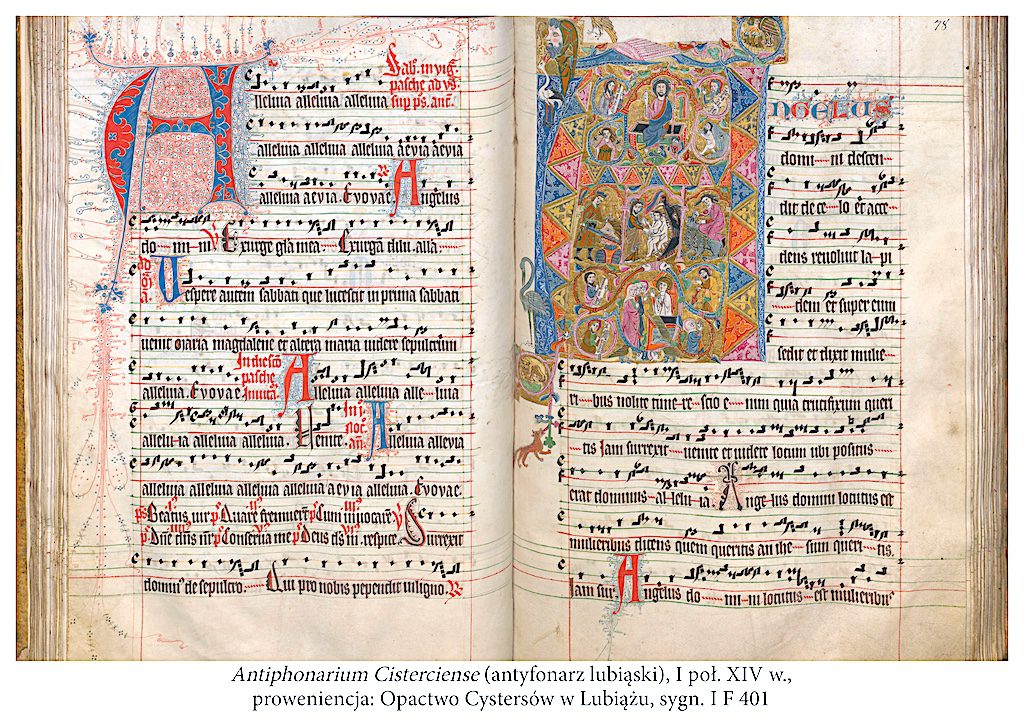 Sabb. in vig.
pasche ad vs.
sup ps. ant.
Alleluia alleluia alleluia
alleluia alleluia alleluia aevia aevia
alleluia aevia. Evovae. Angelus
do-- mi-- ni Exurge gla mea. Exurgam dilu. alla.
Vespere autem sabbati que lucescit in prima sabbati
venit maria magdalene et altera maria videre sepulcrum
alleluia. Evovae
In die sco
pasche
Invitat.
Alleluia alleluia alle-- luia
allelu-ia alleluia alleluia. Venite.
In i.
noct.
an.
Alleluia allevia
alleluia alleluia alleluia alleluia aevia alleluia. Evovae.
ps Beatus vir ps Quare fremuerunt ps Cum invocarem V Surrexit
ps Dne dns nr ps Conserva me ps Deus ds m. respice.
dominus de sepulcro. Qui pro nobis pependit in ligno. R
78
ANGELUS
domi-- ni descen--
dit de ce-- lo et acce--
dens revolvit la-pi--
--dem et super eum
sedit et dixit mulie--
ri-- bus nolite time-re-- scio e-- nim quia crucifixum queri
tis Iam surrexit-- venite et videte locum ubi positus
erat dominus al-lelu-ia. Ange-lus domini locutus est
mulieribus dicens quem queritis an ihe-- sum queri-- tis.
Iam sur. Angelus do-- mi-ni locutus-- est mulieribus
Antiphonarium Cisterciense (antyfonarz lubiąski), I poł. XIV w.,
proweniencja: Opactwo Cystersów w Lubiążu, sygn. I F 401